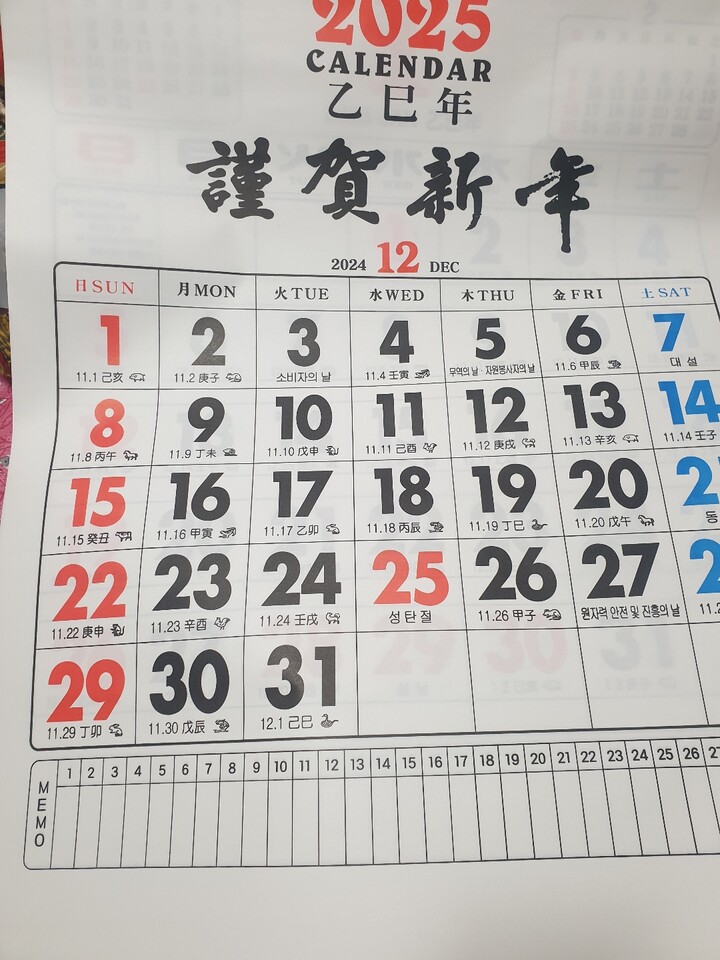 2025
CALENDAR
乙巳年
謹賀新年
2024 12 DEC
日SUN 月MON 火TUE 水WED 木THU 金FRI 土SAT
1 2 3 4 5 6 7
11.1 己亥 11.2 庚子 소비자의 날 11.4 壬寅 무역의 날·자원봉사자의 날 11.6 甲辰 대설
8 9 10 11 12 13 14
11.8 丙午 11.9 丁未 11.10 戊申 11.11 己酉 11.12 庚戌 11.13 辛亥 11.14 壬子
15 16 17 18 19 20
11.15 癸丑 11.16 甲寅 11.17 乙卯 11.18 丙辰 11.19 丁巳 11.20 戊午 동
22 23 24 25 26 27
11.22 庚申 11.23 辛酉 11.24 壬戌 성탄절 11.26 甲子 원자력 안전 및 진흥의 날
29 30 31
11.29 丁卯 11.30 戊辰 12.1 己巳
MEMO 1 2 3 4 5 6 7 8 9 10 11 12 13 14 15 16 17 18 19 20 21 22 23 24 25 26 27